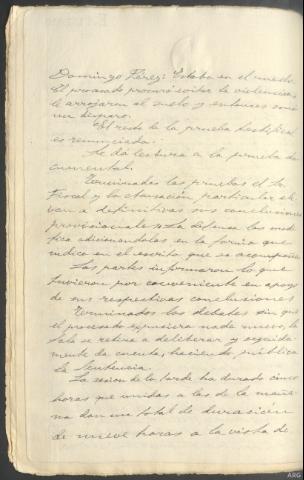 Domingo Pérez: Estaba en el muelle.
El procesado procuró evitar la violencia,
le arrojaron al suelo y entonces sonó
un disparo.
El resto de la prueba testifical
es renunciada.
Se dá lectura a la prueba do-
cumental.
Terminadas las pruebas el Sr.
Fiscal y la acusación particular ele-
van a definitivas sus conclusiones
provisionales y la defensa las modi-
fica adicionandolas en la forma que
indica en el escrito que se acompaña.
Las partes informaron lo que
tuvieron por conveniente en apoyo
de sus respectivas conclusiones
Terminados los debates sin que
el procesado expusiera nada nuevo, la
Sala se retira a deliberar y seguida-
mente da cuenta, haciendo pública
la Sentencia.
La sesion de la tarde ha durado cinco
horas que unidas a las de la maña-
na dan un total de duración
de nueve horas a la vista de
ARG